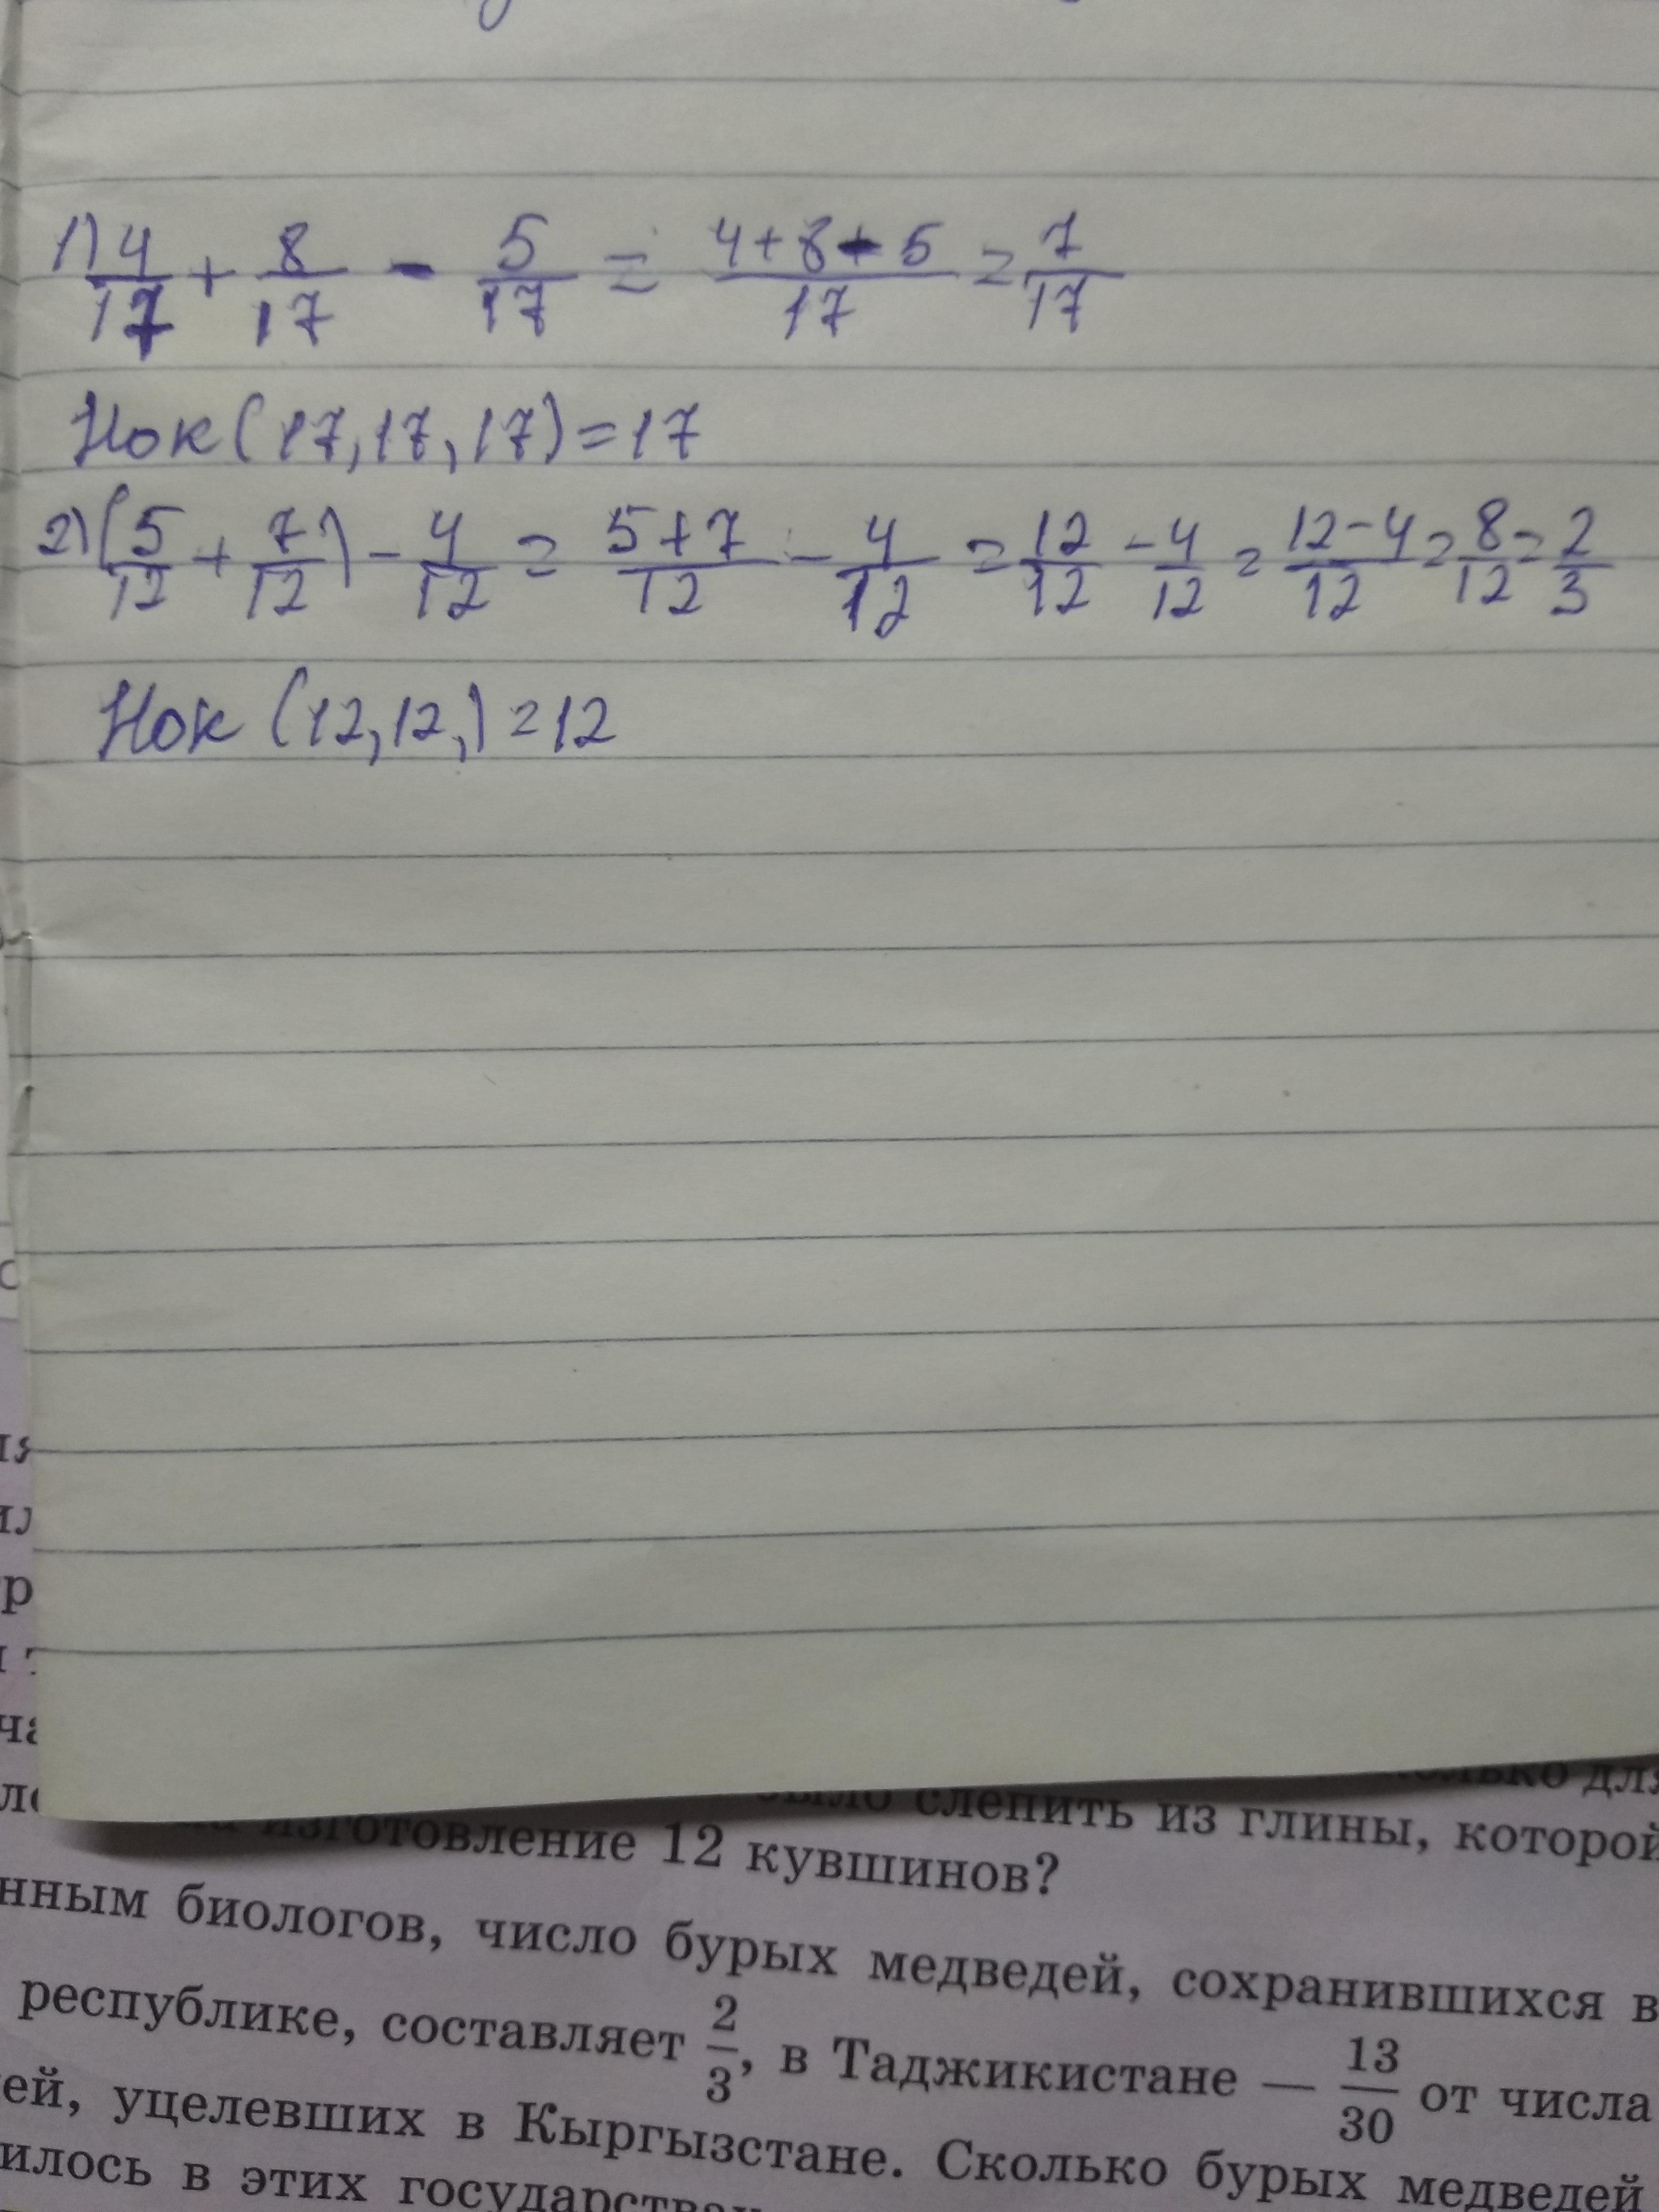 1) 4/17 + 8/17 - 5/17 = 4+8-5/17 = 7/17
Нок (17, 17, 17) = 17
2) (5/12 + 7/12) - 4/12 = 5+7/12 - 4/12 = 12/12 - 4/12 = 12-4/12 = 8/12 = 2/3
Нок (12, 12,) = 12
слепить из глины, которой
изготовление 12 кувшинов?
биологов, число бурых медведей, сохранившихся в
республике, составляет 2/3, в Таджикистане — 13/30 от числа
уцелевших в Кыргызстане. Сколько бурых медведей
в этих